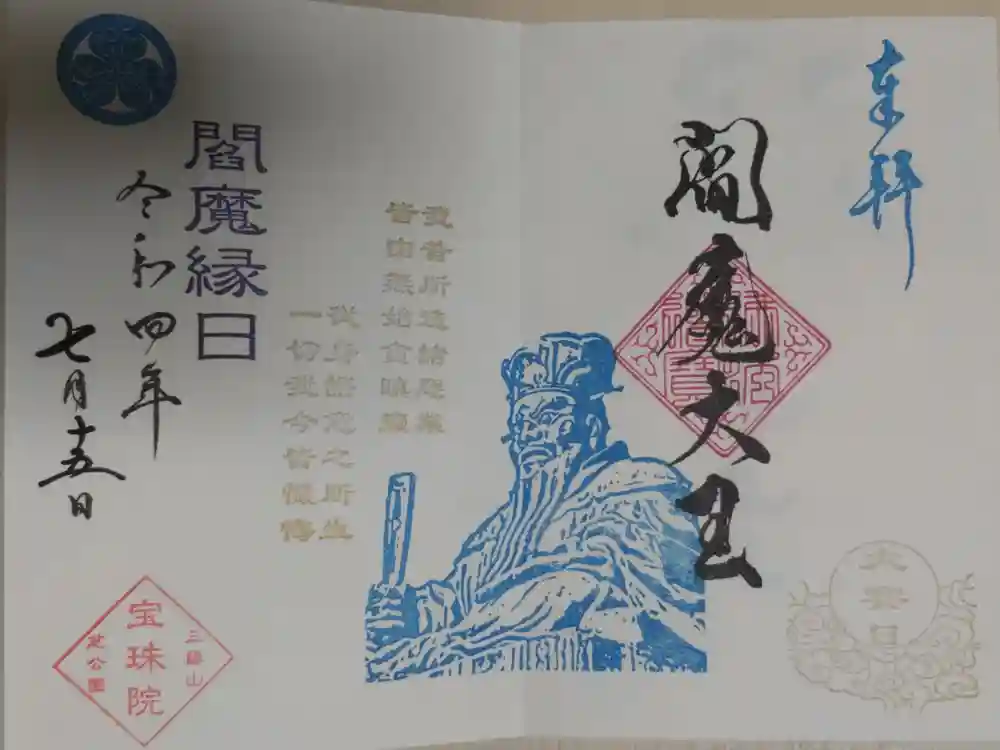 奉拝
閻魔大王
大賽日
我昔所造諸悪業
皆由無始貪瞋癡
従身語意之所生
一切我今皆懺悔
閻魔縁日
令和四年
七月十五日
三縁山
宝珠院
芝公園